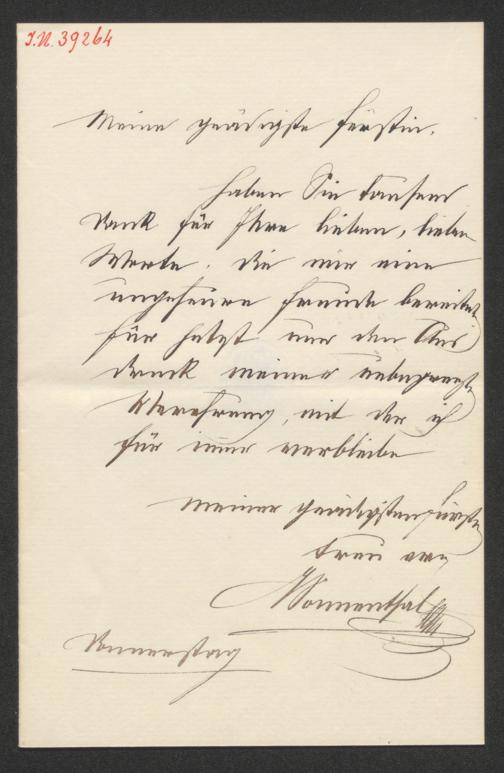 J.N. 39264
Meine gnädigste Fürstin.
Haben Sie tausend
Dank für Ihre lieben, lieben
Worte, die mir eine
ungeheure Freude bereitet
für jetzt nur den Aus
druck meiner unbegrenzten
Verehrung, mit der ich
für immer verbleibe
meiner gnädigsten Fürstin
treu erg
Sonnenthal
Donnerstag